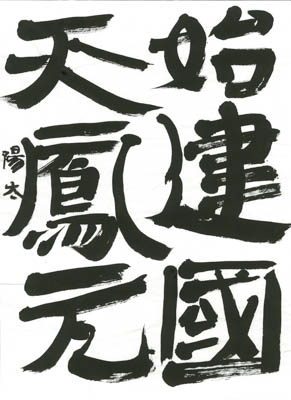 始建國
天鳳元
陽太